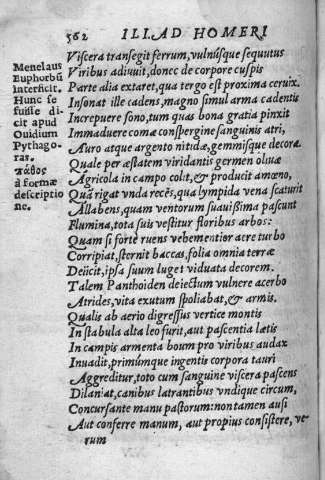 562 ILIAD HOMERI
Viscera transegit ferrum, vulnúsque sequutus
Viribus adiuuit, donec de corpore cuspis
Parte alia extaret, qua tergo est proxima ceruix.
Insonat ille cadens, magno simul arma cadentis
Increpuere sono, tum quas bona gratia pinxit
Immaduere comæ conspergine sanguinis atri,
Auro atque argento nitidæ, gemmisque decoræ
Quale per æstatem viridantis germen oliuæ
Agricola in campo colit, & producit amœno,
Quã rigat vnda recẽs, qua lympida vena scaturit
Allabens, quam ventorum suauißima pascunt
Flumina, tota suis vestitur floribus arbos:
Quam si forte ruens vehementior aere turbo
Corripiat, sternit baccas, folia omnia terræ
Deijcit, ipsa suum luget viduata decorem.
Talem Panthoiden deiectum vulnere acerbo
Atrides, vita exutum spoliabat, & armis.
Qualis ab aerio digressus vertice montis
In stabula alta leo furit, aut pascentia lætis
In campis armenta boum pro viribus audax
Inuadit, primúmque ingentis corpora tauri
Aggreditur, toto cum sanguine viscera pascens
Dilaniat, canibus latrantibus vndique circum,
Concursante manu pastorum: non tamen ausi
Aut conferre manum, aut propius consistere, ve
rum
Menelaus
Euphorbũ
interficit.
Hunc se
fuisse di
cit apud
Ouidium
Pythago-
ras.
πάθος
à formæ
descriptio
ne.